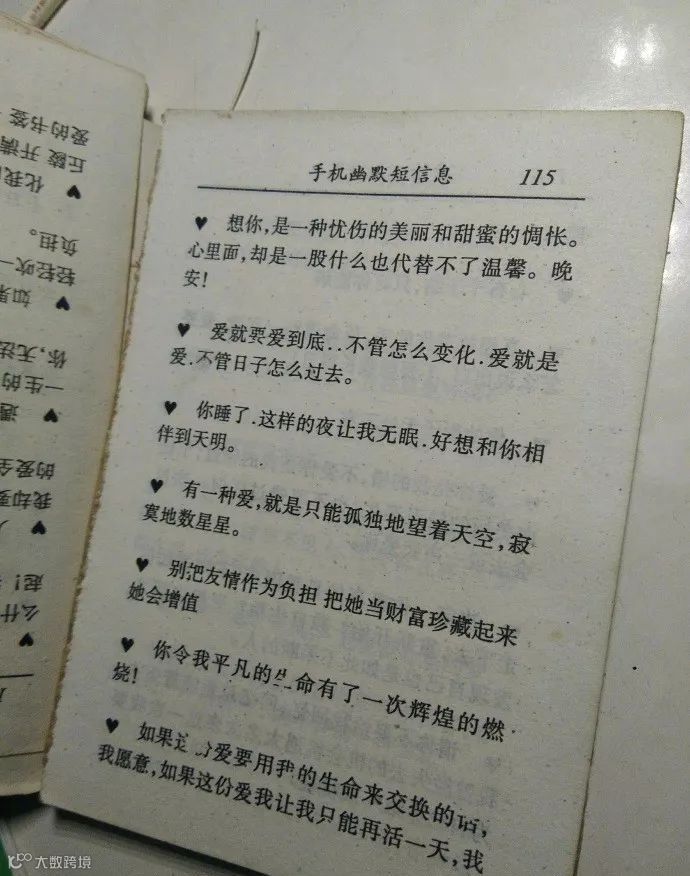 手机幽默短信息 115
♥ 想你,是一种忧伤的美丽和甜蜜的惆怅。
心里面,却是一股什么也代替不了温馨。晚
安!
♥ 爱就要爱到底..不管怎么变化.爱就是
爱.不管日子怎么过去。
♥ 你睡了.这样的夜让我无眠.好想和你相
伴到天明。
♥ 有一种爱,就是只能孤独地望着天空,寂
寞地数星星。
♥ 别把友情作为负担 把她当财富珍藏起来
她会增值
♥ 你令我平凡的生命有了一次辉煌的燃
烧!
♥ 如果这份爱要用我的生命来交换的话,
我愿意,如果这份爱我让我只能再活一天,我
么什
♥
起!
♥
我却要
的爱全
♥ 遇
一生的
你,无法
♥ 如果
轻轻吹一
负担。
♥ 化我
丘陵开满
爱的书签
大数跨境